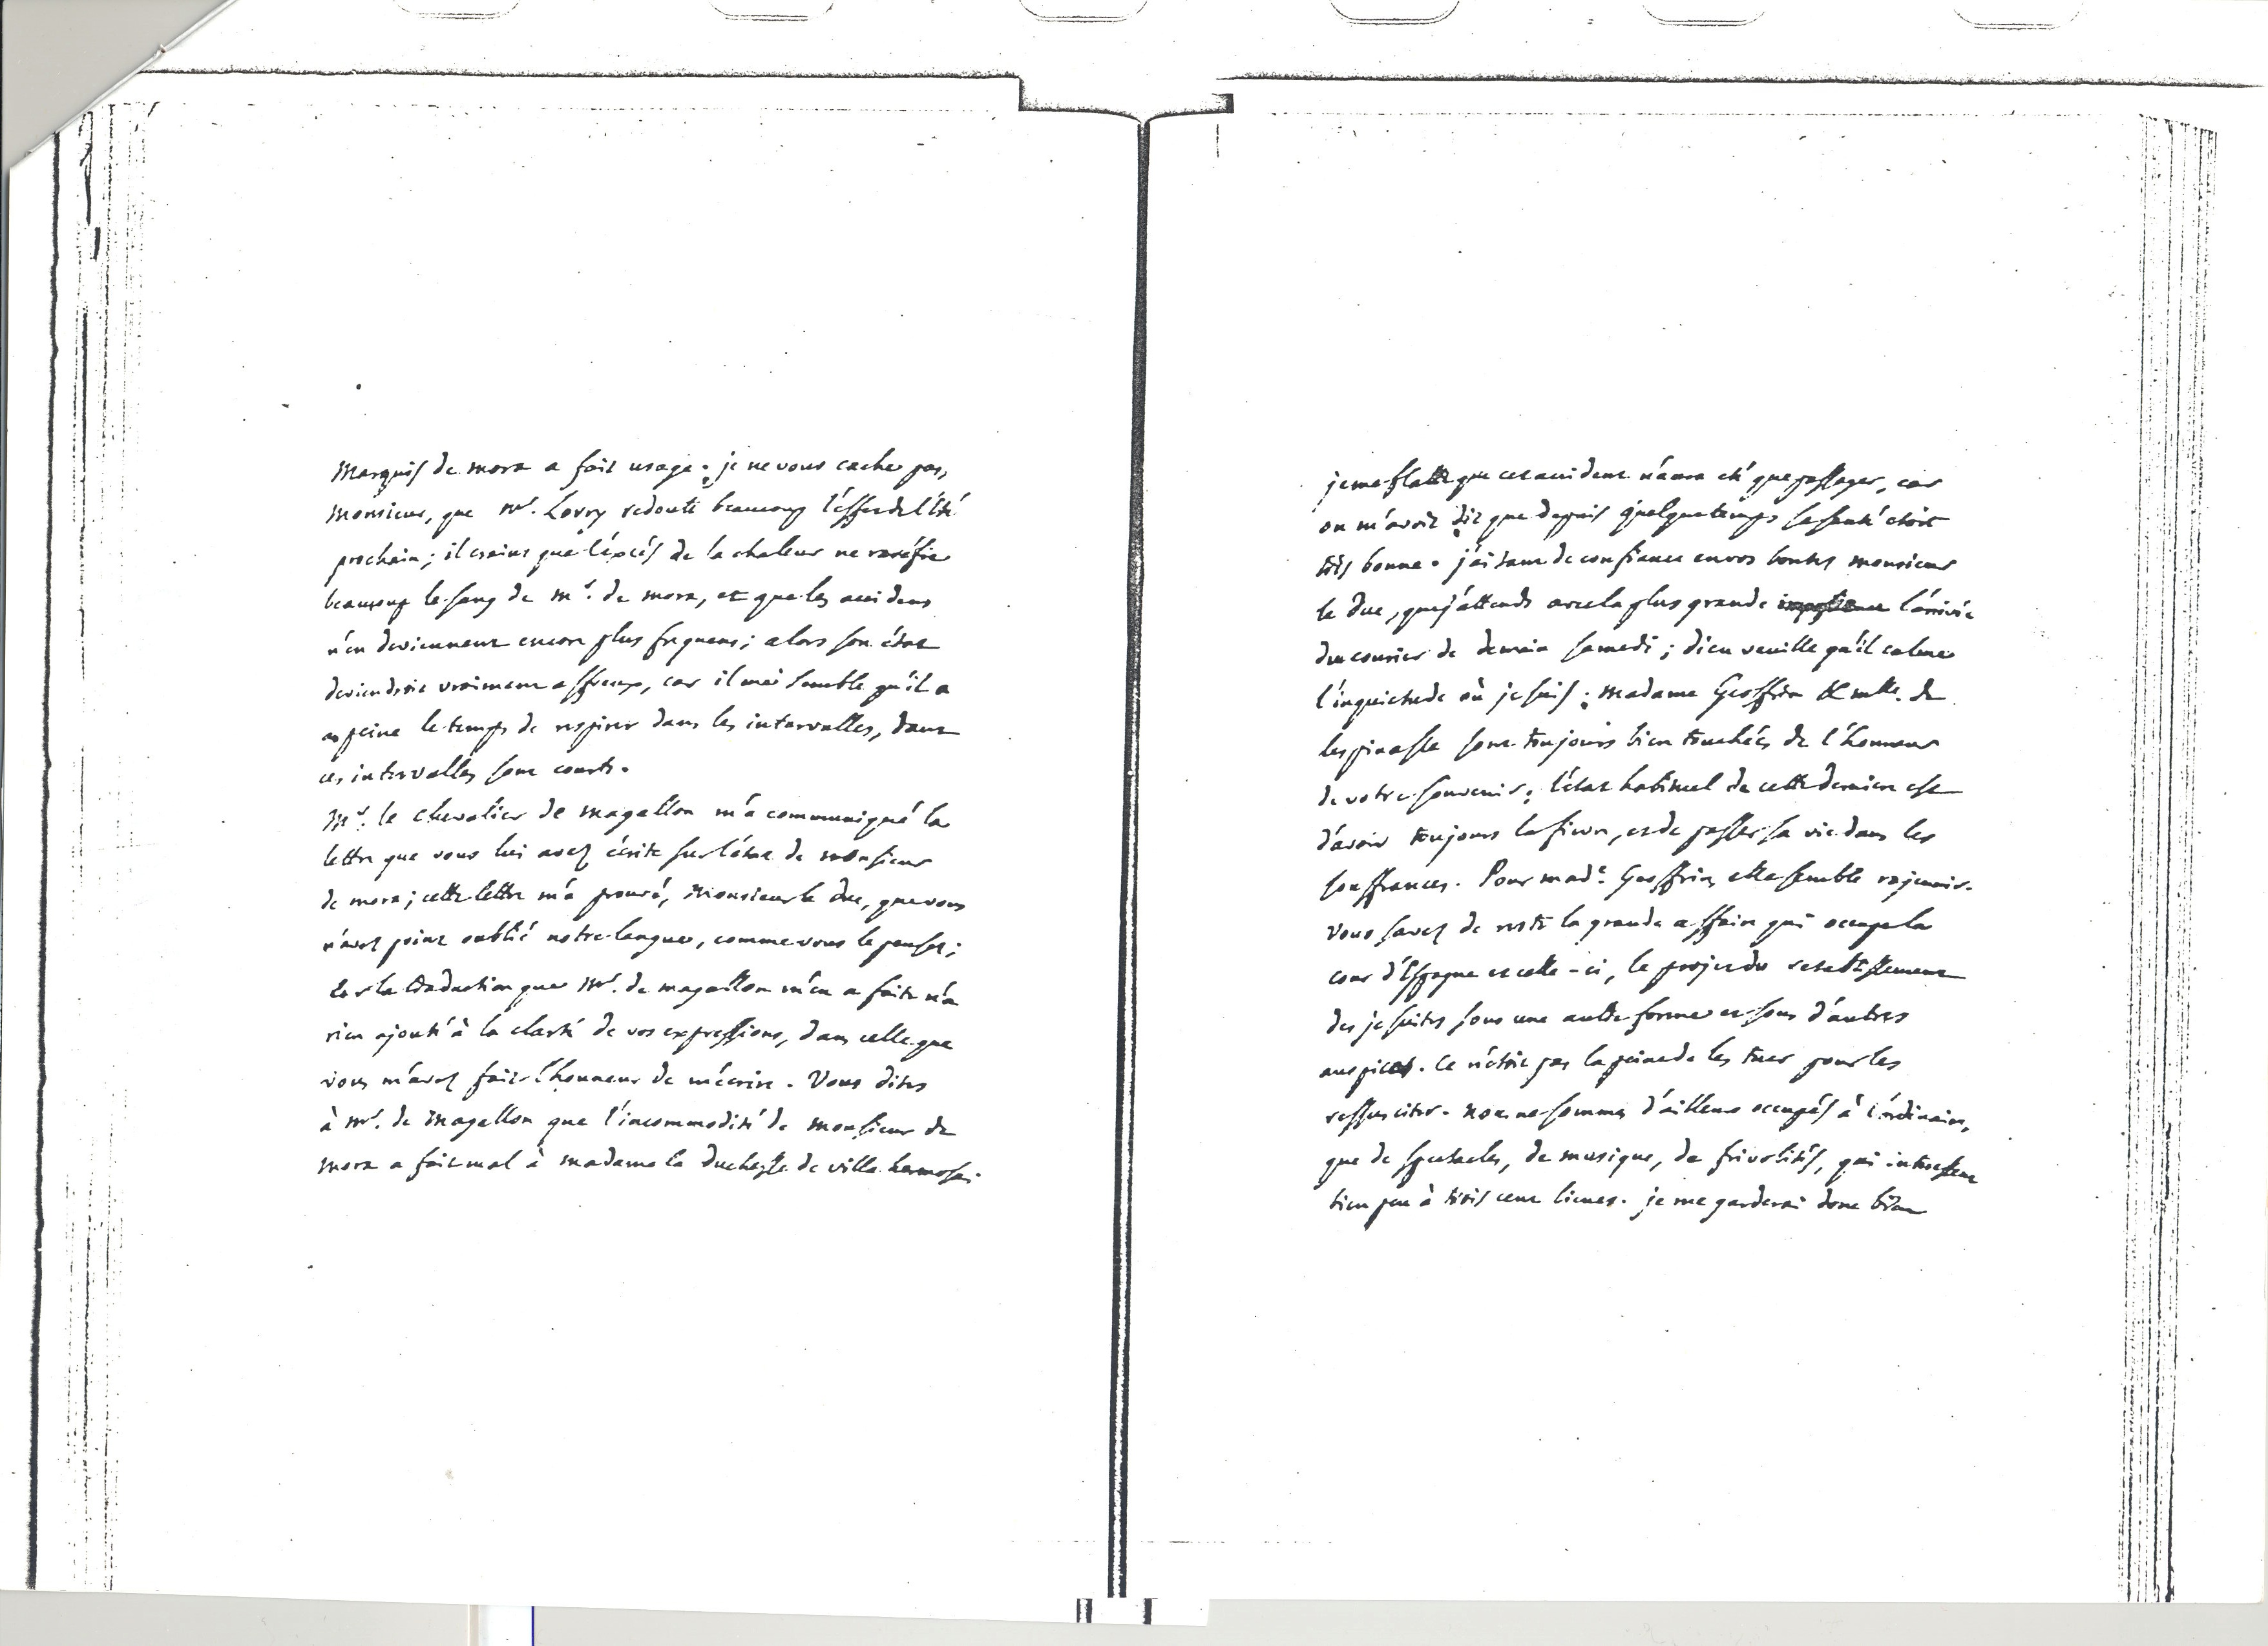 Marquis de mora a fait usage ; je ne vous cache pas,
Monsieur, que Mr. Lorry redoute beaucoup l'effet de l'été
prochain ; il craint que l'excés de la chaleur ne raréfie
beaucoup le sang de Mr. de mora, et que les accidens
n'en deviennent encore plus frequens ; alors son état
deviendroit vraiment affreux, car il me semble qu'il a
a peine le temps de respirer dans les intervalles, tant
ces intervalles sont courts.
Mr. le chevalier de magallon m'a communiqué la
lettre que vous lui avez écrite sur l'état de monsieur
de mora ; cette lettre m'a prouvé, Monsieur le duc, que vous
n'avez point oublié notre langue, comme vous le pensez ;
car la traduction que Mr. de magallon m'en a faite n'a
rien ajouté à la clarté de vos expressions, dans celle que
vous m'avez fait l'honneur de m'écrire. Vous dites
à Mr. de Magallon que l'incommodité de monsieur de
mora a fait mal à madame la duchesse de villa hermosa ;
je me flatte que cet accident n'aura eté que passager, car
on m'avoit dit que depuis quelque temps sa santé etoit
très bonne. j'ai tant de confiance en vos bontés monsieur
le duc, que j'attends avec la plus grande impatience l'arrivée
du courier de demain samedi ; dieu veuille qu'il calme
l'inquietude où je suis ; madame Geoffrin & mlle. de
lespinasse sont toujours bien touchées de l'honneur
de votre souvenir ; l'état habituel de cette derniere est
d'avoir toujours la fievre, et de passer sa vie dans les
souffrances. Pour made. Geoffrin, elle semble rajeunir.
Vous savez de reste la grande affaire qui occupe la
cour d'Espagne et celle-ci, le projet du retablissement
des jesuites sous une autre forme et sous d'autres
auspices. Ce n'étoit pas la peine de les tuer pour les
ressusciter. nous ne sommes d'ailleurs occupés à l'ordinaire,
que de spectacles, de musique, de frivolités, qui interessent
bien peu à trois cent lieues. je me garderai donc bien